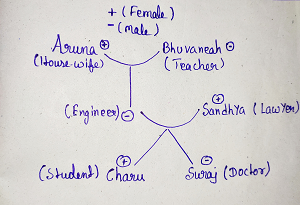 + (Female)
- (Male)
Aruna + Bhuvanesh -
(House-wife) (Teacher)
(Engineer) - + Sandhya (Lawyer)
+ -
(Student) Charu Suraj (Doctor)